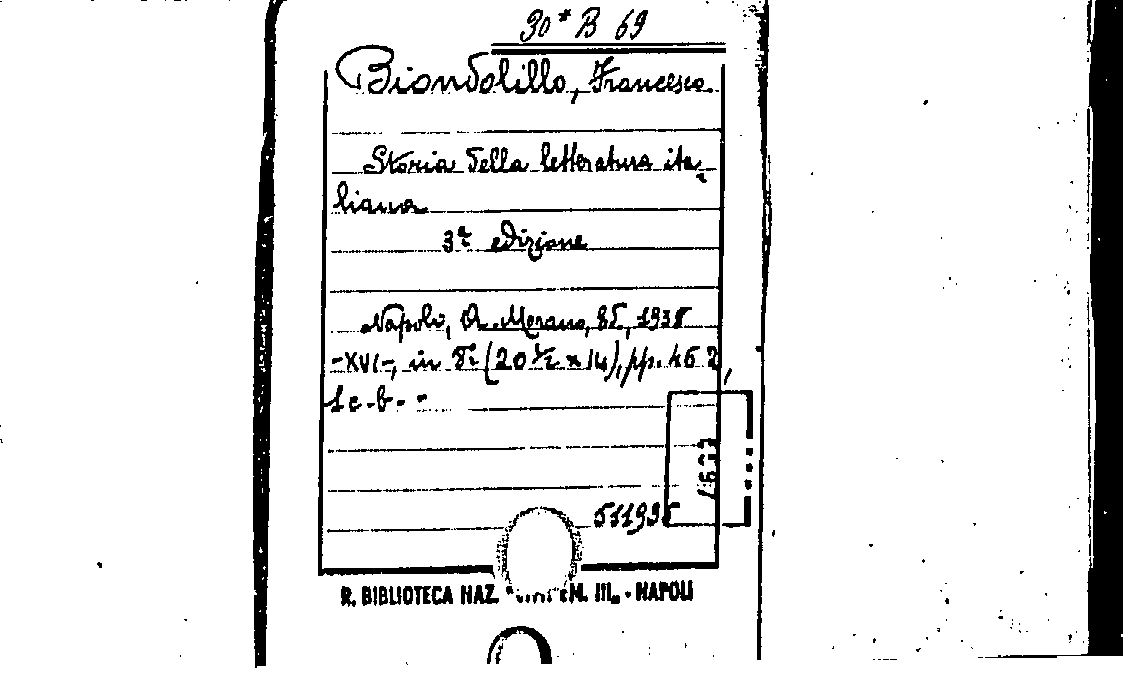 30* B 69
Biondolillo, Francesco
Storia della letteratura ita-
liana
3ª edizione
Napoli, A. Morano, Ed., 1938
-XVI-, in 8° (20 ½ x 14), pp. 462,
1 c. b. -
511995
R. BIBLIOTECA NAZ. III. - NAPOLI